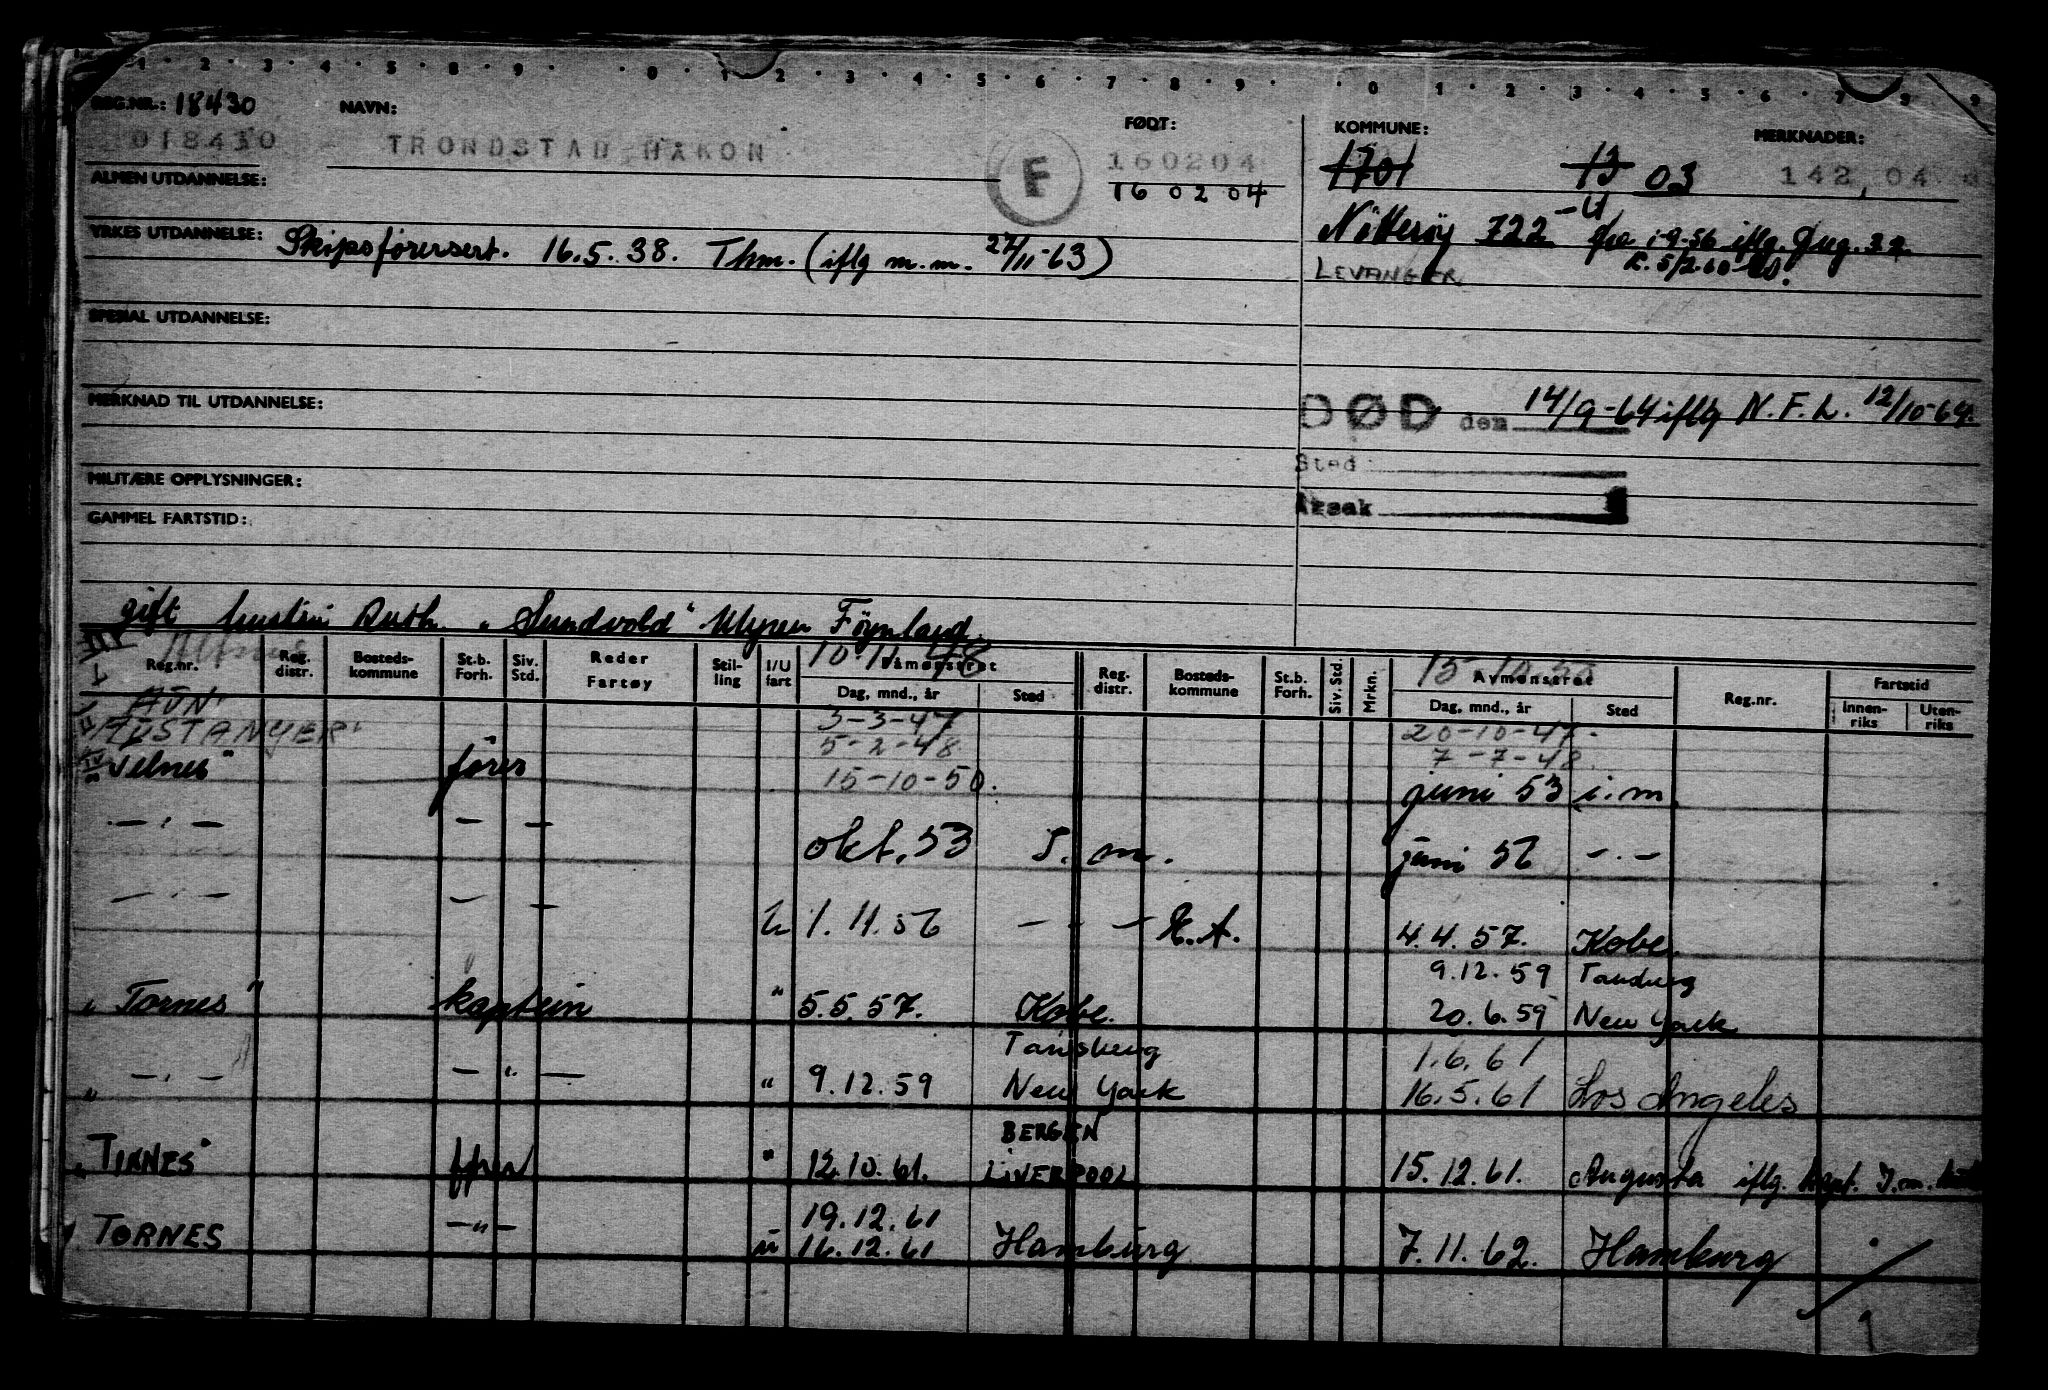 1 · 2 · 3 · 4 · 5 · 8 · 9 · · 0 · 1 · 2 · 3 · 4 · 5 · 6 · 7 · 8 · 9 · · 0 · 1 · 2 · 3 · 4 · 5 · 6 · 7 · 8 · 9
REG.NR.: 18430 NAVN: FØDT: KOMMUNE: MERKNADER:
018430 TRONDSTAD HÅKON F 160204 1701 13 03 142, 04
ALMEN UTDANNELSE: 16 02 04
YRKES UTDANNELSE: Skipsførersert. 16.5.38. Thm. (iflg m.m. 27/11-63) Nøtterøy 722 fra 1-9-56 iflg.
LEVANGER
SPESIAL UTDANNELSE:
MERKNAD TIL UTDANNELSE:
DØD den 14/9-64 iflg N.F.L. 12/10-64.
Sted
MILITÆRE OPPLYSNINGER:
Årsak
GAMMEL FARTSTID:
gift Ruth "Sundvold" Föynland.
Reg.nr. Reg. distr. Bosteds-kommune St.b. Forh. Siv. Std. Reder Fartøy Stil-ling I/U fart 10-11-48 Påmønstret Dag, mnd., år Sted Reg. distr. Bosteds-kommune St.b. Forh. Siv. Std. Mrkn. Avmønstret Dag, mnd., år Sted Reg.nr. Fartstid Innen-riks Uten-riks
3-3-47 20-10-47.
AUSTANGER 5-2-48 7-7-48.
Velnes" fører 15-10-50. juni 53 i.m.
— . — — — okt. 53 I. m. juni 56 — . —
— . — — — U 1.11.56 — . — K.A. 4.4.57. Kobe.
9.12.59
"Tornes" kaptein " 5.5.57. Kobe. 20.6.59 New York
Tønsberg 1.6.61
" — . — — " — " 9.12.59 New York 16.5.61 Los Angeles
BERGEN
"TIRNES" fører " 12.10.61. LIVERPOOL 15.12.61. Augusta iflg. kapt. I.m.
19.12.61
TORNES — " — u 16.12.61 Hamburg 7.11.62. Hamburg